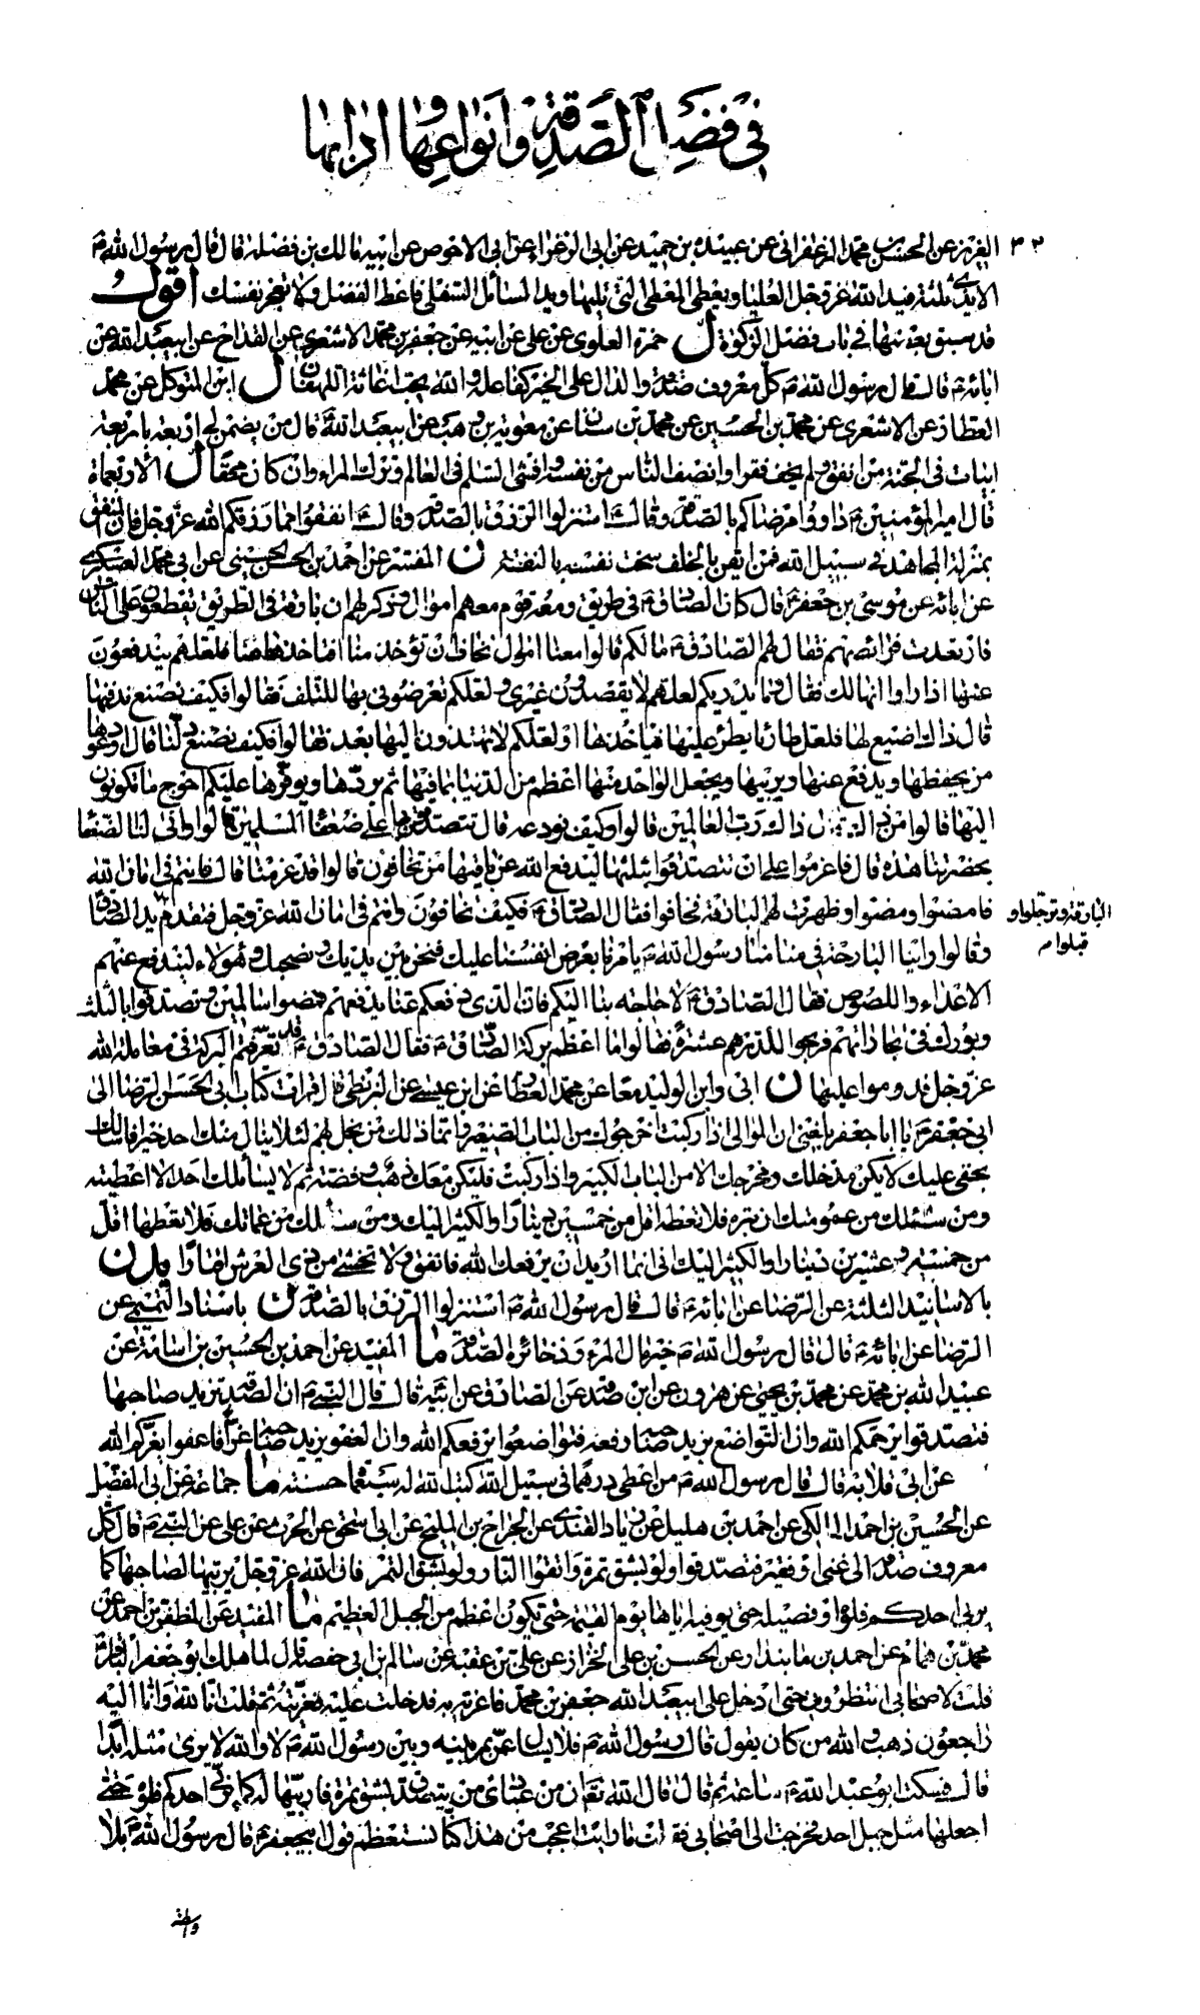 في فضل الصدقة وأنواعها وآدابها
٣٢ العزيز عن الحسن بن محمد الزعفراني عن عبيدة بن حميد عن ابي الزعراء عن ابي الاحوص عن ابيه مالك بن نضلة قال قال رسول الله ص
الايدي ثلثة فيد الله عز وجل العليا ويد المعطي التي تليها ويد السائل السفلى فاعط الفضل ولا تعجز نفسك اقول
قد سبق بعضها في باب فضل الزكوة ل حمزة العلوي عن علي عن ابيه عن جعفر بن محمد الاشعري عن القداح عن ابيعبد الله عن
ابائه ع قال قال رسول الله ص كل معروف صدقة والدال على الخير كفاعله والله يحب اغاثة اللهفان ل ابن المتوكل عن محمد
العطار عن الاشعري عن محمد بن الحسين عن محمد بن سنان عن معوية بن وهب عن ابيعبد الله ع قال من يضمن لي اربعة باربعة
ابيات في الجنة من انفق ولم يخف فقرا وانصف الناس من نفسه وافشى السلم في العالم وترك المراء وان كان محقا ل الاربعماة
قال امير المؤمنين ع داووا مرضاكم بالصدقة وقال ع استنزلوا الرزق بالصدقة وقال ع انفقوا مما رزقكم الله عز وجل فان المنفق
بمنزلة المجاهد في سبيل الله فمن ايقن بالخلف سخت نفسه بالنفقة ن المفسر عن احمد بن الحسن الحسيني عن ابي محمد العسكري
عن ابائه عن موسى بن جعفر ع قال كان الصادق ع في طريق ومعه قوم معهم اموال وذكر لهم ان بارقة في الطريق يقطعون على الناس
فارتعدت فرائصهم فقال لهم الصادق ع ما لكم قالوا معنا اموال نخاف ان تؤخذ منا افتاخذها منا فلعلهم يندفعون
عنها اذا راوا انها لك فقال وما يدريكم لعلهم لا يقصدون غيري ولعلكم تعرضوني بها للتلف فقالوا فكيف نصنع ندفنها
قال ذاك اضيع لها فلعل طارئا يطرء عليها فياخذها او لعلكم لا تهتدون اليها بعد فقالوا فكيف نصنع دلنا قال اودعوها
من يحفظها ويدفع عنها ويربيها ويجعل الواحد منها اعظم من الدنيا بما فيها ثم يردها ويوفرها عليكم احوج ما تكونون
اليها قالوا من ذاك قال ذاك رب العالمين قالوا وكيف نودعه قال تتصدقون بها على ضعفاء المسلمين قالوا وانى لنا الضعفاء
بحضرتنا هذه قال فاعزموا على ان تتصدقوا بثلثها ليدفع الله عن باقيها من تخافون قالوا قد عزمنا قال فانتم في امان الله
فامضوا ومضوا وظهرت لهم البارقة فخافوا فقال الصادق ع فكيف تخافون وانتم في امان الله عز وجل فتقدم يد الصادق
البارقة وترجلوا و
قبلوا م
وقالوا راينا البارحة في منامنا رسول الله ص يامرنا بعرض انفسنا عليك فنحن بين يديك ونصحبك وهؤلاء ليندفع عنهم
الاعداء واللصوص فقال الصادق ع لا حاجة بنا اليكم فان الذي دفعكم عنا يدفعهم فمضوا سالمين وتصدقوا بالثلث
وبورك في تجاراتهم فربحوا للدرهم عشرة فقالوا ما اعظم بركة الصادق ع فقال الصادق ع قد تعرفتم البركة في معاملة الله
عز وجل فدوموا عليها ن ابي وابن الوليد معا عن محمد العطار عن ابن عيسى عن البزنطي قال قرات كتاب ابي الحسن الرضا الى
ابي جعفر ع يا ابا جعفر بلغني ان الموالي اذا ركبت اخرجوك من الباب الصغير فانما ذلك من بخل لهم لئلا ينال منك احد خيرا فاسالك
بحقي عليك لا يكن مدخلك ومخرجك الا من الباب الكبير واذا ركبت فليكن معك ذهب وفضة ثم لا يسالك احد الا اعطيته
ومن سئلك من عمومتك ان تبره فلا تعطه اقل من خمسين دينارا والكثير اليك ومن سالك من عماتك فلا تعطها اقل
من خمسة وعشرين دينارا والكثير اليك اني انما اريد ان يرفعك الله فانفق ولا تخش من ذي العرش اقتارا يد ن
بالاسانيد الثلثة عن الرضا عن ابائه ع قال قال رسول الله ص استنزلوا الرزق بالصدقة ن باسناد التميمي عن
الرضا عن ابائه ع قال قال رسول الله ص خير مال المرء وذخائره الصدقة ما المفيد عن احمد بن الحسين بن اسامة عن
عبيد الله بن محمد عن محمد بن يحيى عن هرون عن ابن صدقة عن الصادق عن ابيه قال قال النبي ص ان الصدقة تزيد صاحبها
فتصدقوا يرحمكم الله وان التواضع يزيد صاحبه رفعة فتواضعوا يرفعكم الله وان العفو يزيد صاحبه عزا فاعفوا يعزكم الله
عن ابي قلابة قال قال رسول الله ص من اعطى درهما في سبيل الله كتب الله له سبعمائة حسنة ما جماعة عن ابي المفضل
عن الحسين بن احمد المالكي عن احمد بن هليل عن زياد القندي عن الجراح بن المليح عن ابي اسحق عن الحرث عن علي عن النبي ص قال كل
معروف صدقة الى غني او فقير فتصدقوا ولو بشق تمرة واتقوا النار ولو بشق التمرة فان الله عز وجل يربيها لصاحبها كما
يربي احدكم فلوه او فصيله حتى يوفيه اياها يوم القيمة حتى تكون اعظم من الجبل العظيم ما المفيد عن المظفر بن احمد عن
محمد بن همام عن احمد بن مابنداد عن الحسن بن علي الخزاز عن علي بن عقبة عن سالم بن ابي حفصة قال لما هلك ابو جعفر الباقر
قلت لاصحابي انتظروني حتى ادخل على ابيعبد الله جعفر بن محمد فاعزيه به فدخلت عليه فعزيته ثم قلت انا لله وانا اليه
راجعون ذهب والله من كان يقول قال رسول الله ص فلا يسال عمن بينه وبين رسول الله ص لا والله لا يرى مثله ابدا
قال فسكت ابو عبد الله ع ساعة ثم قال قال الله تعالى ان من عبادي من يتصدق بشق تمرة فاربيها له كما يربي احدكم فلوه حتى
اجعلها مثل جبل احد فخرجت الى اصحابي فقلت ما رايت اعجب من هذا كنا نستعظم قول ابيجعفر ع قال رسول الله ص بلا
واسطة